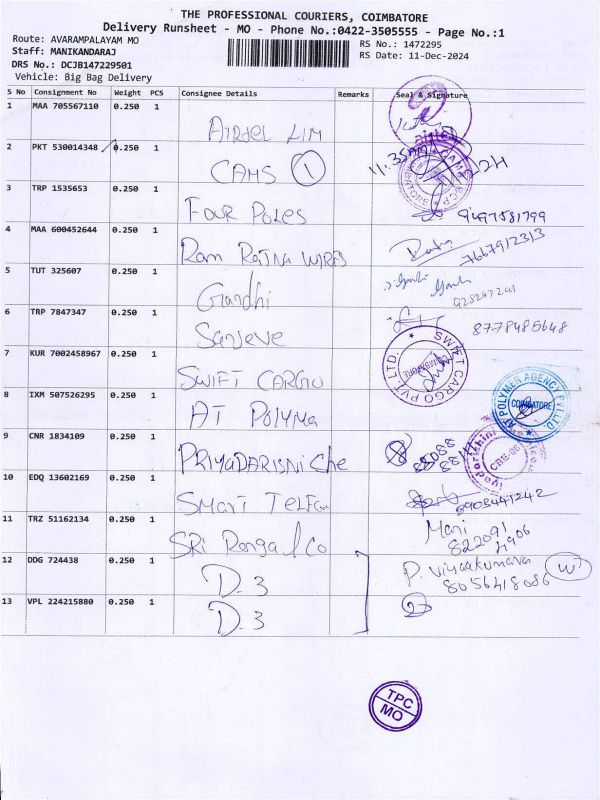 THE PROFESSIONAL COURIERS, COIMBATORE
Delivery Runsheet - MO - Phone No.:0422-3505555 - Page No.:1
Route: AVARAMPALAYAM MO
RS No.: 1472295
Staff: MANIKANDARAJ
RS Date: 11-Dec-2024
DRS No.: DCJB147229501
Vehicle: Big Bag Delivery
S No Consignment No Weight PCS Consignee Details Remarks Seal & Signature
1 MAA 705567110 0.250 1 AIRTEL LIM
2 PKT 530014348 0.250 1 CAMS 1 11.35AM
3 TRP 1535653 0.250 1 FOUR POLES 9497581799
4 MAA 600452644 0.250 1 Ram RATNA WIRES 7667912313
5 TUT 325607 0.250 1 Gandhi
6 TRP 7847347 0.250 1 Sanjeve 8778485648
7 KUR 7002458967 0.250 1 SWIFT CARGO SWIFT CARGO PVT. LTD. COIMBATORE
8 IXM 507526295 0.250 1 AT POLYMA AT POLYMER AGENCY PVT LTD COIMBATORE
9 CNR 1834109 0.250 1 PRIYADARISNI Che
10 EDQ 13602169 0.250 1 SMART 5903441242
11 TRZ 51162134 0.250 1 SRI Ranga & Co Mani
822091
4906
12 DDG 724438 0.250 1 D.3 P. Vijayakumara W
8056418086
13 VPL 224215880 0.250 1 D.3
TPC
MO